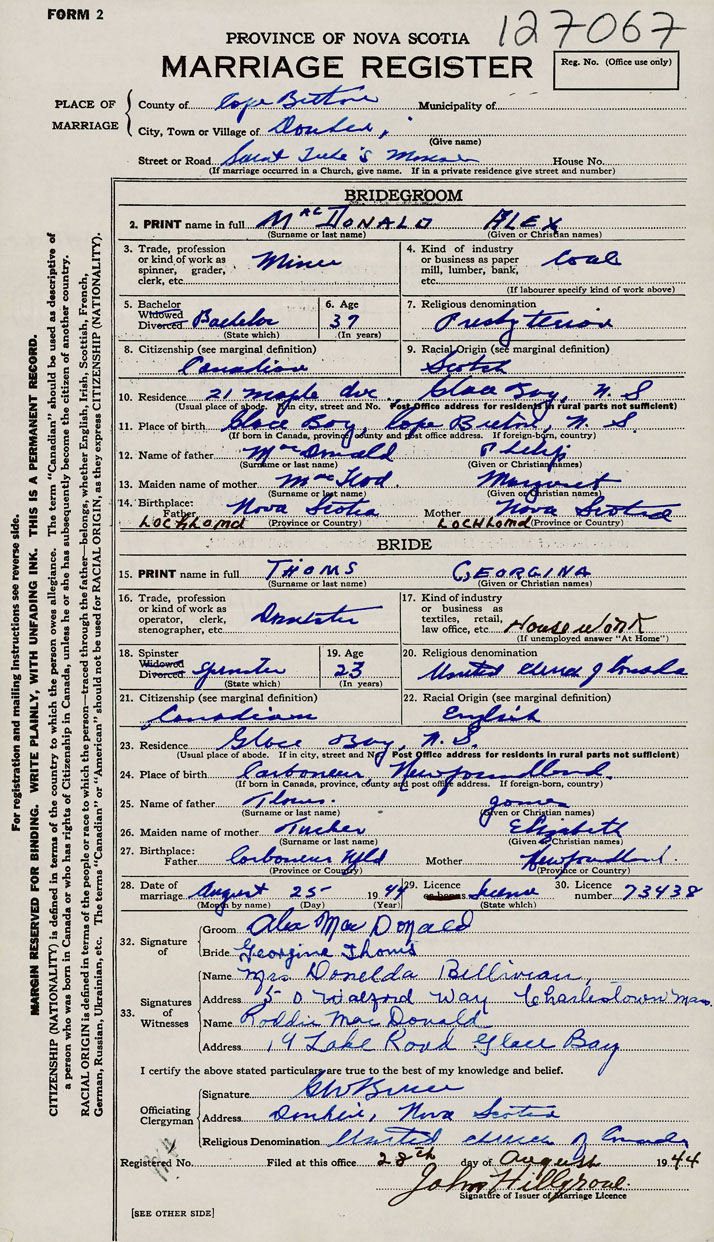 FORM 2
127067
PROVINCE OF NOVA SCOTIA
MARRIAGE REGISTER
Reg. No. (Office use only)
PLACE OF MARRIAGE
County of Cape Breton Municipality of
City, Town or Village of
(Give name)
Street or Road Saint Luke's House No.
(If marriage occurred in a Church, give name. If in a private residence give street and number)
BRIDEGROOM
2. PRINT name in full MacDONALD ALEX
(Surname or last name) (Given or Christian names)
3. Trade, profession or kind of work as spinner, grader, clerk, etc. Miner
4. Kind of industry or business as paper mill, lumber, bank, etc. Coal
(If labourer specify kind of work above)
5. Bachelor Widowed Divorced Bachelor
(State which)
6. Age 37
(In years)
7. Religious denomination
Presbyterian
8. Citizenship (see marginal definition)
Canadian
9. Racial Origin (see marginal definition)
Scotch
10. Residence 21 Maple Ave. Glace Bay, N. S
(Usual place of abode. If in city, street and No. Post Office address for residents in rural parts not sufficient)
11. Place of birth Glace Bay, Cape Breton, N. S.
(If born in Canada, province, county and post office address. If foreign-born, country)
12. Name of father MacDonald Philip
(Surname or last name) (Given or Christian names)
13. Maiden name of mother Margaret
(Surname or last name) (Given or Christian names)
14. Birthplace: Father Nova Scotia Mother Nova Scotia
LOCH LOMD (Province or Country) LOCH LOMD (Province or Country)
BRIDE
15. PRINT name in full THOMS GEORGINA
(Surname or last name) (Given or Christian names)
16. Trade, profession or kind of work as operator, clerk, stenographer, etc. Domestic
17. Kind of industry or business as textiles, retail, law office, etc. Housework
(If unemployed answer "At Home")
18. Spinster Widowed Divorced Spinster
(State which)
19. Age 23
(In years)
20. Religious denomination
United Church of Canada
21. Citizenship (see marginal definition)
Canadian
22. Racial Origin (see marginal definition)
English
23. Residence Glace Bay, N. S.
(Usual place of abode. If in city, street and No. Post Office address for residents in rural parts not sufficient)
24. Place of birth Carbonear, Newfoundland.
(If born in Canada, province, county and post office address. If foreign-born, country)
25. Name of father Thoms. James
(Surname or last name) (Given or Christian names)
26. Maiden name of mother Tucker Elizabeth
(Surname or last name) (Given or Christian names)
27. Birthplace: Father Carbonear Nfld Mother Newfoundland.
(Province or Country) (Province or Country)
28. Date of marriage August 25 1944
(Month by name) (Day) (Year)
29. Licence or banns license
(State which)
30. Licence number 73438
32. Signature of
Groom Alex Mac Donald
Bride Georgina Thoms
33. Signatures of Witnesses
Name Mrs Donelda
Address 50 Walford Way Charlestown Mass.
Name Roddie Mac Donald
Address 19 Lake Road Glace Bay
I certify the above stated particulars are true to the best of my knowledge and belief.
Officiating Clergyman
Signature
Address Nova Scotia
Religious Denomination United Church of Canada
Registered No. Filed at this office 28th day of August 1944
John Hillgrove
Signature of Issuer of Marriage Licence
[SEE OTHER SIDE]
For registration and mailing instructions see reverse side.
MARGIN RESERVED FOR BINDING. WRITE PLAINLY, WITH UNFADING INK. THIS IS A PERMANENT RECORD.
CITIZENSHIP (NATIONALITY) is defined in terms of the country to which the person owes allegiance. The term "Canadian" should be used as descriptive of
a person who was born in Canada or who has rights of Citizenship in Canada, unless he or she has subsequently become the citizen of another country.
RACIAL ORIGIN is defined in terms of the people or race to which the person—traced through the father—belongs, whether English, Irish, Scottish, French,
German, Russian, Ukrainian, etc. The terms "Canadian" or "American" should not be used for RACIAL ORIGIN, as they express CITIZENSHIP (NATIONALITY).